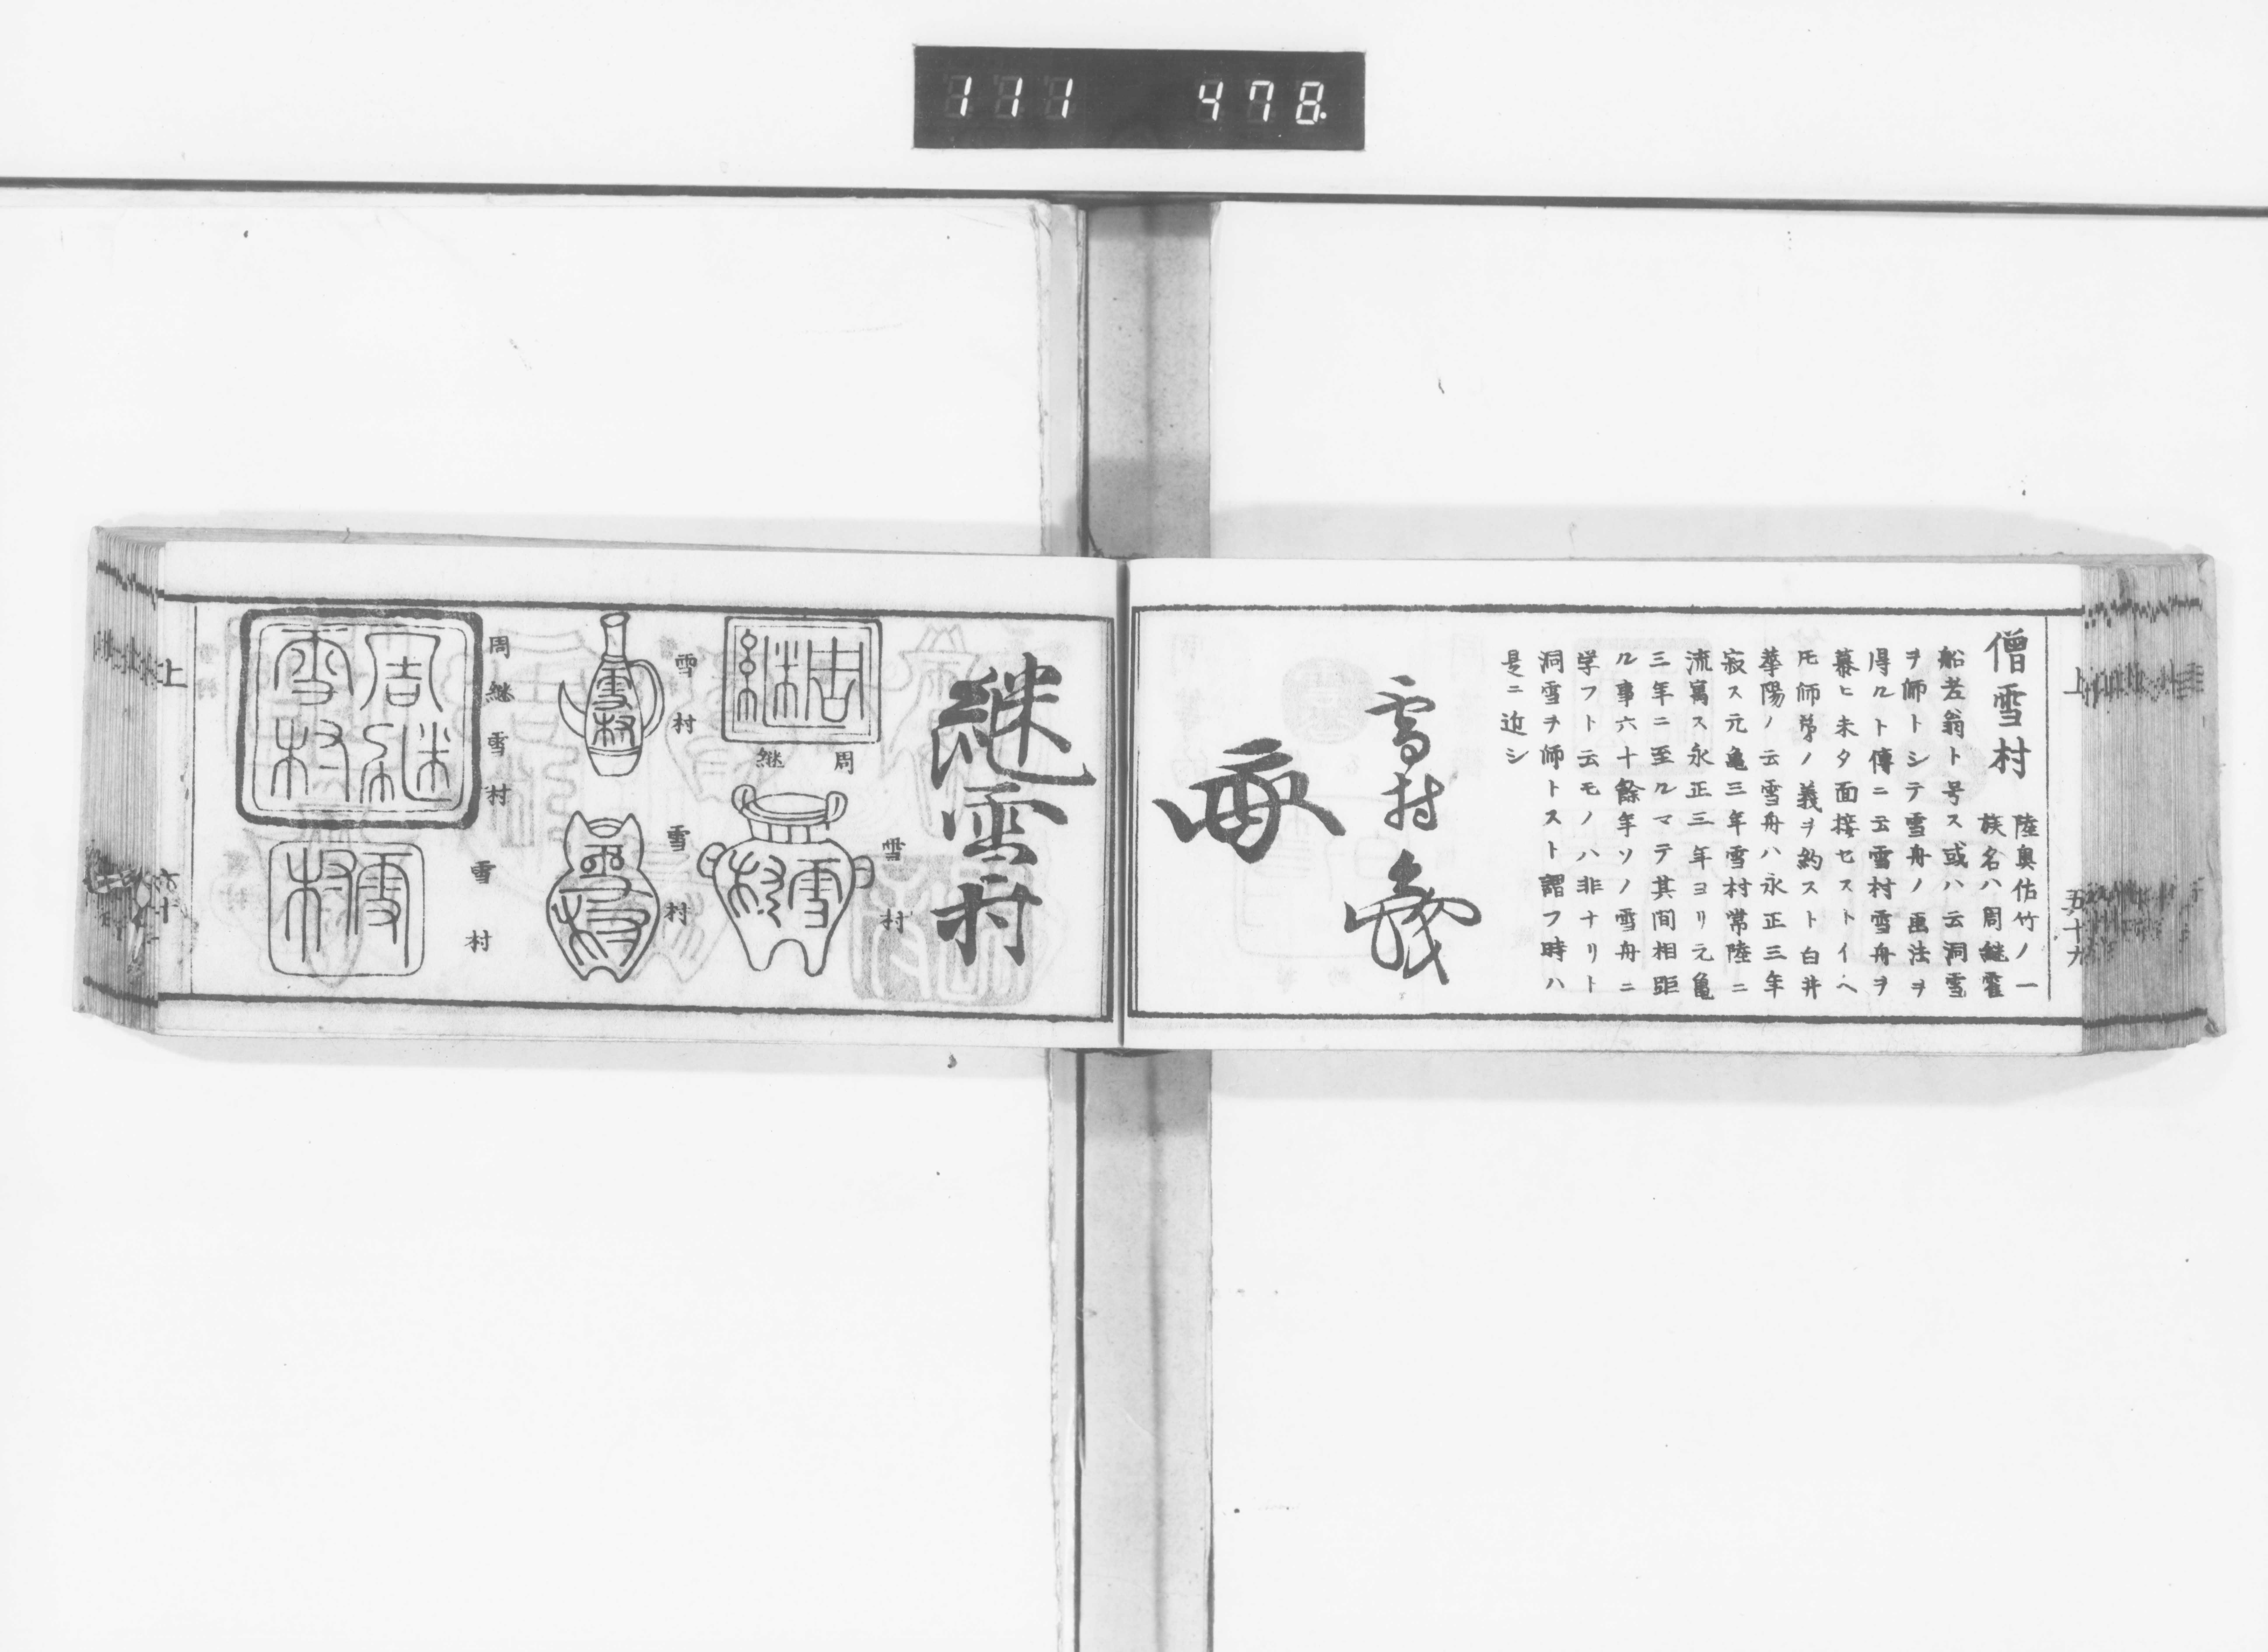 111 478.
上
五十九
僧雪村
陸奥佐竹ノ一
族名ハ周継霍
船老翁ト号ス或ハ云洞雪
ヲ師トシテ雪舟ノ画法ヲ
得ルト傳ニ云雪村雪舟ヲ
慕ヒ未タ面接セストイヘ
𪜈師弟ノ義ヲ約スト白井
華陽ノ云雪舟ハ永正三年
寂ス元亀三年雪村常陸ニ
流寓ス永正三年ヨリ元亀
三年ニ至ルマテ其間相距
ル事六十餘年ソノ雪舟ニ
学フト云モノハ非ナリト
洞雪ヲ師トスト謂フ時ハ
是ニ近シ
雪村
継雪村
周継
周継
雪村
雪村
雪村
雪村
雪村
雪村
周継雪村
周継雪村
雪村
雪村
上
六十